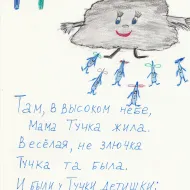 Там, в высоком небе,
Мама Тучка жила.
Весёлая, не злючка
Тучка та была.
И были у Тучки детишки: